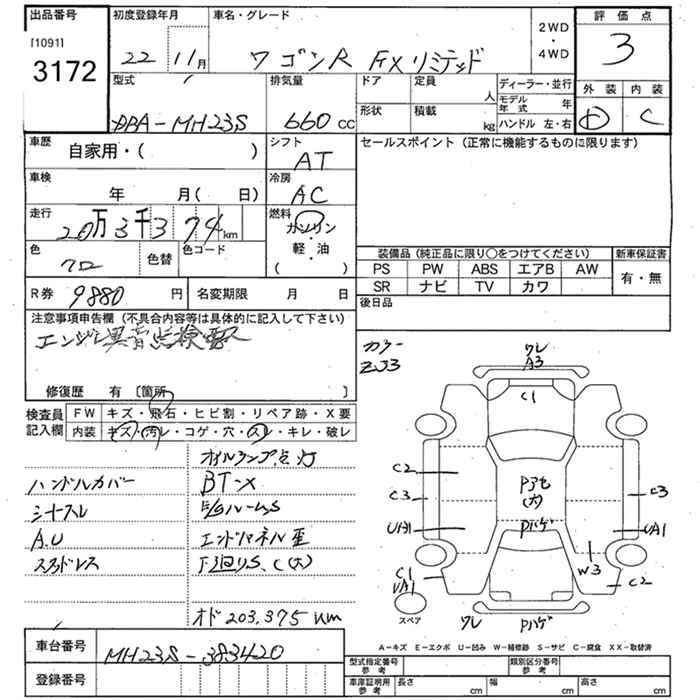 出品番号
[1091]
3172
初度登録年月
22 11月
車名・グレード
ワゴンR FXリミテッド
2WD
・
4WD
評価点
3
外装 内装
D C
型式
DBA-MH23S
排気量
660 cc
ドア 定員
人
形状 積載
kg
ディーラー・並行
モデル年式 年
ハンドル 左・右
車歴
自家用・( )
シフト
AT
車検
年 月(日)
冷房
AC
走行
20万3千374km
燃料
ガソリン
・
軽・油
( )
色
クロ
色替
色コード
R券 9880 円
名変期限 月 日
セールスポイント(正常に機能するものに限ります)
装備品(純正品に限り○をつけてください)
新車保証書
PS PW ABS エアB AW
有・無
SR ナビ TV カワ
後日品
注意事項申告欄(不具合内容等は具体的に記入して下さい)
エンジン異音点検要ス
修復歴 有〔箇所 〕
検査員
記入欄
FW キズ・飛石・ヒビ割・リペア跡・X要
内装 キズ・汚レ・コゲ・穴・スレ・キレ・破レ
オイルランプ点灯
ハンドルカバー
BT-X
シートスレ
E/GルームS
A.U
エンドパネル歪
スタッドレス
下回りS、C(大)
オド203,375km
車台番号
MH23S-383420
登録番号
カラー
ZJ3
ワレ
A3
C1
C2
C3
UB1
Pアセ
(大)
Pハゲ
C3
UA1
W3
C2
C1
UA1
スペア
ワレ
Pハゲ
A-キズ E-エクボ U-凹み W-補修跡 S-サビ C-腐食 XX-取替済
型式指定番号
参考
類別区分番号
参考
車庫証明用
参考
長さ cm
幅 cm
高さ cm